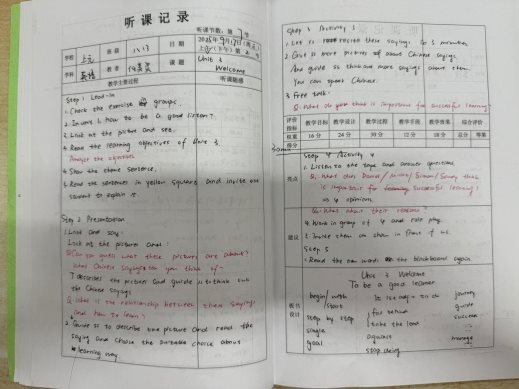 听课记录
听课节数: 第 节
学校 上元 班级 八13 日期 2025年9月17日(周三)
上(下午)第2节
学科 英语 教者 课题 Unit 3
Welcome
教学主要过程 听课随感
Step 1 Lead-in
1. Check the exercise groups.
2. Invite how to be a good listen?
3. Look at the picture and see.
4. Read the learning objectives of Unit 3.
Analyse the objectives
4. Show the theme sentence.
5. Read the sentences in yellow square and invite one
student to explain it.
Step 2 Presentation
1. Look and say:
Look at the pictures and:
Can you guess what these pictures are about?
What Chinese sayings you think of
T describes the pictures and guide ss to think out
the Chinese sayings
Q: What is the relationship between these sayings
and how to learn?
2. Guide ss to describe the picture and read the
saying and choose the suitable choice about
learning way
Step 3 Activity 3
1. Let ss recite these sayings. 3 minutes
2. Give ss more pictures about Chinese sayings.
And guide ss think are more sayings about them.
You can speak Chinese.
3. Free talk:
Q: What do you think is important for successful learning?
评价指标 教学目标 教学设计 教学过程 教学手段 教学效果 综合评价
权重 16分 24分 30分 12分 18分 总分 等第
得分
亮点
Step 4 Activity 4
1. Listen to the tape and answer questions.
Q: What does Daniel/ /Simon/Sandy think
is important for successful learning?
4 opinions
Q: What about their reasons?
建议
4. Work in group of 4 and role play.
2. Invite them to show in front of us.
Step 5
1. Read the new words the blackboard again.
板书设计
Unit 3 Welcome
To be a good learner
begin/start with
It is adj to do
journey
step by step
fall behind
guide
single
take the lead
success
goal
against
manage
stop doing